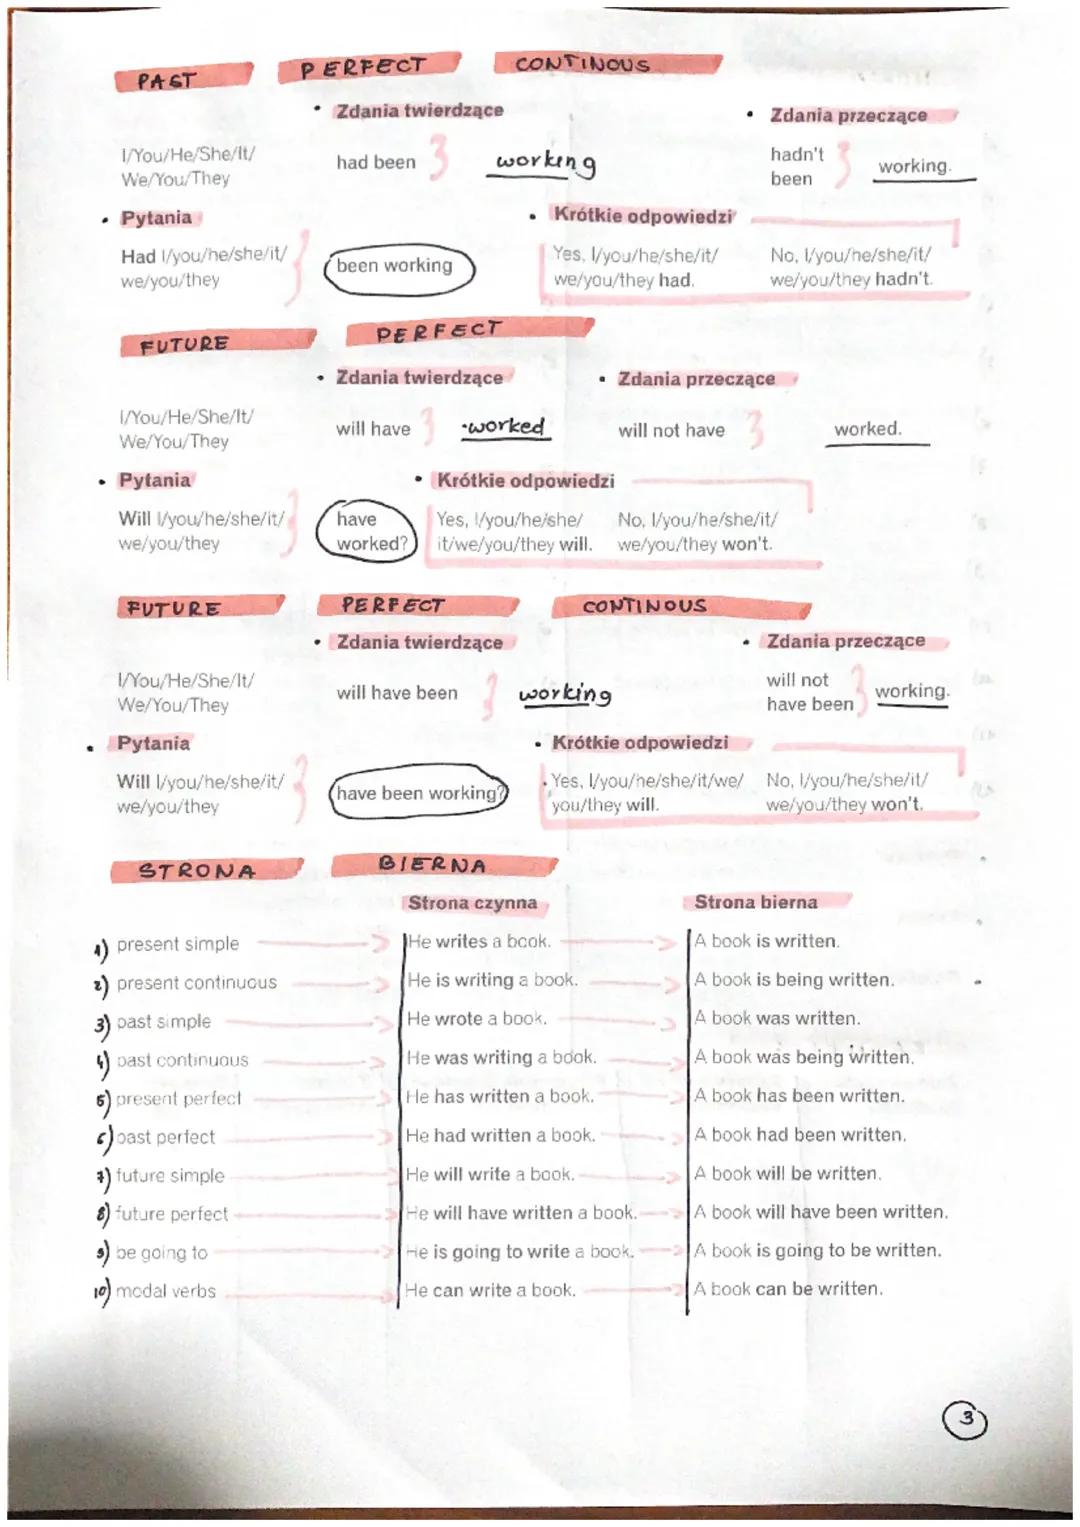 PAST PERFECT CONTINOUS
• Zdania twierdzące • Zdania przeczące
I/You/He/She/It/ had been working hadn't working.
We/You/They been
• Pytania • Krótkie odpowiedzi
Had I/you/he/she/it/ been working Yes, I/you/he/she/it/ No, I/you/he/she/it/
we/you/they we/you/they had. we/you/they hadn't.
FUTURE PERFECT
• Zdania twierdzące • Zdania przeczące
I/You/He/She/It/ will have worked will not have worked.
We/You/They
• Pytania • Krótkie odpowiedzi
Will I/you/he/she/it/ have Yes, I/you/he/she/ No, I/you/he/she/it/
we/you/they worked? it/we/you/they will. we/you/they won't.
FUTURE PERFECT CONTINOUS
• Zdania twierdzące • Zdania przeczące
I/You/He/She/It/ will have been working will not working.
We/You/They have been
• Pytania • Krótkie odpowiedzi
Will I/you/he/she/it/ have been working? Yes, I/you/he/she/it/we/ No, I/you/he/she/it/
we/you/they you/they will. we/you/they won't.
STRONA BIERNA
Strona czynna Strona bierna
1) present simple He writes a book. A book is written.
2) present continuous He is writing a book. A book is being written.
3) past simple He wrote a book. A book was written.
4) past continuous He was writing a book. A book was being written.
5) present perfect He has written a book. A book has been written.
6) past perfect He had written a book. A book had been written.
7) future simple He will write a book. A book will be written.
8) future perfect He will have written a book. A book will have been written.
9) be going to He is going to write a book. A book is going to be written.
10) modal verbs He can write a book. A book can be written.
3